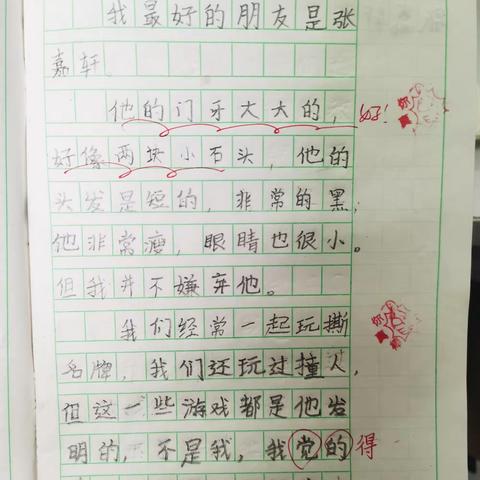 我最好的朋友是张
嘉轩
他的门牙大大的， 好!
好像两块小石头，他的
头发是短的，非常的黑，
他非常瘦，眼睛也很小。
但我并不嫌弃他。
我们经常一起玩撕
名牌，我们还玩过撞人，
但这一些游戏都是他发
明的，不是我，我党的 得